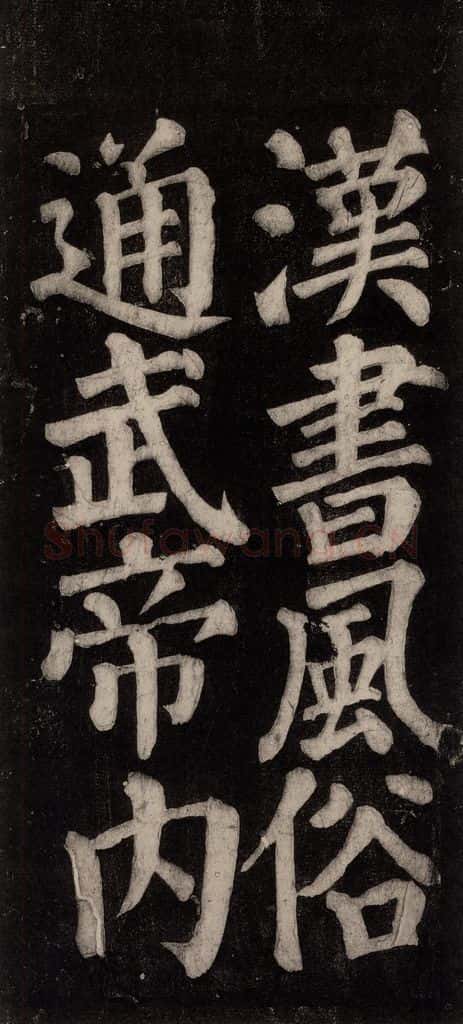 漢書風俗
通武帝内
Shufawang.CN